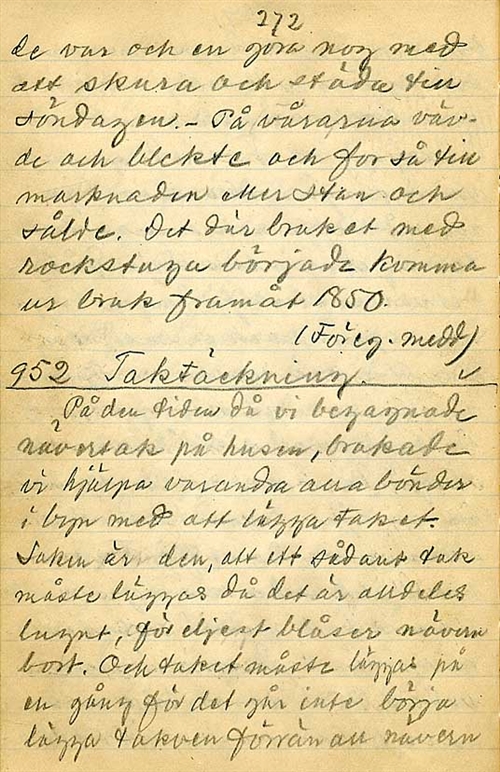 272
de var och en göra nog med
att skura och städa till
söndagen. - På vårarna väv-
de och blekte och for så till
marknaden eller stan och
sålde. Det där bruket med
rockstuga började komma
ur bruk framåt 1850.
(Föreg. medd)
952 Taktäckning. ✓
På den tiden då vi begagnade
nävertak på husen, brukade
vi hjälpa varandra alla bönder
i byn med att lägga taket.
Saken är den, att ett sådant tak
måste läggas då det är alldeles
lugnt, för eljest blåser nävern
bort. Och taket måste läggas på
en gång för det går inte börja
lägga takven förrän all nävern